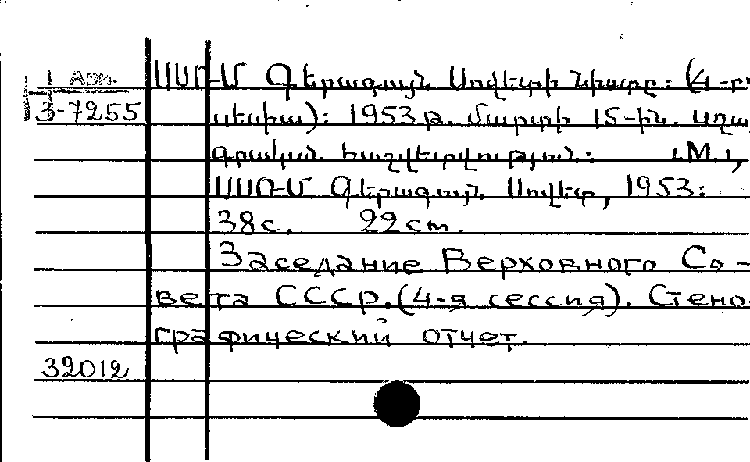 1 Арм.
3-7255
ՍՍՌՄ Գերագույն Սովետի նիստը: (4-րդ
սեսիա): 1953թ. մարտի 15-ին. սղա
գրական հաշվետվություն: [М.],
ՍՍՌՄ Գերագույն Սովետ, 1953:
38с. 22 cm.
Заседание Верховного Со-
вета СССР. (4-я сессия). Стено-
графический отчет.
32012